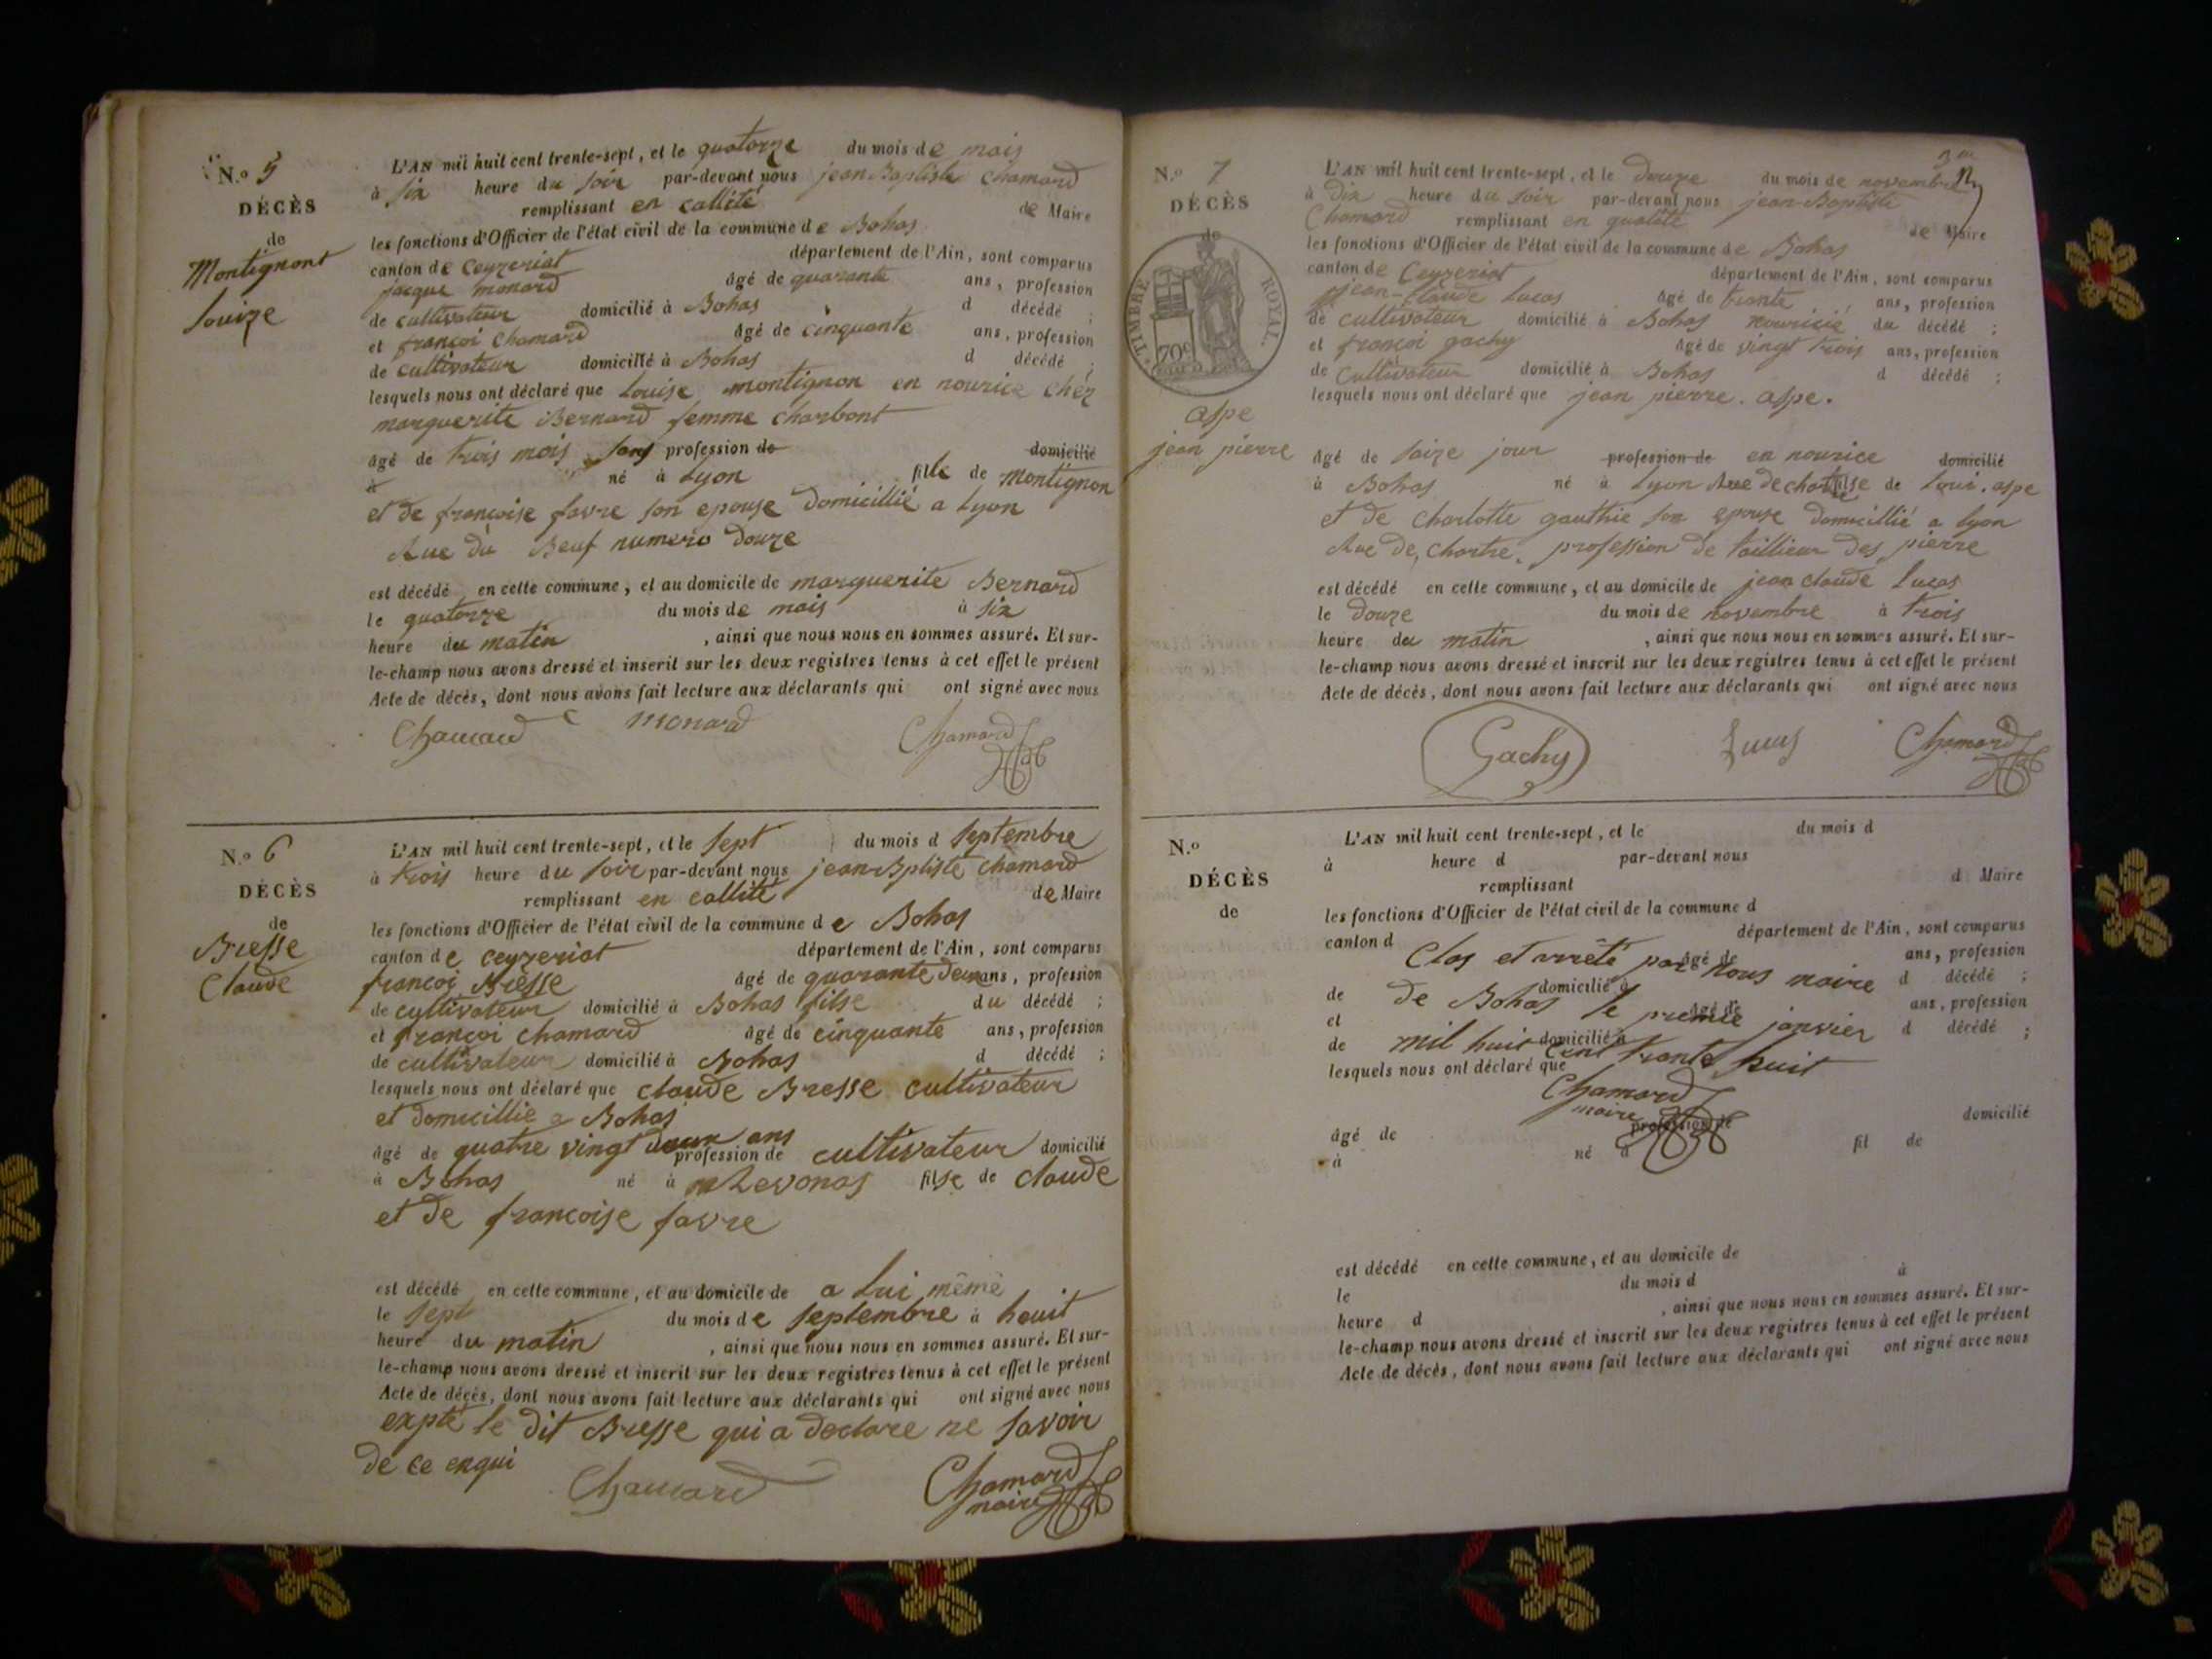 N.º 5
DÉCÈS
de
Montignont
Louize
L'AN mil huit cent trente-sept, et le quatorze du mois de mais
à six heure du soir par-devant nous jean Baptiste Chamard
remplissant en callité de Maire
les fonctions d'Officier de l'état civil de la commune de Bohas
canton de Ceyzeriat département de l'Ain, sont comparus
jacque monard âgé de quarante ans, profession
de cultivateur domicilié à Bohas d décédé ;
et françoi Chamard âgé de cinquante ans, profession
de cultivateur domicilié à Bohas d décédé ;
lesquels nous ont déclaré que Louise montignon en nourice chez
marguerite Bernard femme Charbont
âgé de trois mois sans profession de domicilié
à né à Lyon fille de Montignon
et de françoise favre son epouse domicillié a Lyon
Rue du Beuf numero douze
est décédé en cette commune, et au domicile de marguerite Bernard
le quatorze du mois de mais à six
heure du matin , ainsi que nous nous en sommes assuré. Et sur-
le-champ nous avons dressé et inscrit sur les deux registres tenus à cet effet le présent
Acte de décès, dont nous avons fait lecture aux déclarants qui ont signé avec nous
Chamard monard Chamard
N.º 6
DÉCÈS
de
Bresse
Claude
L'AN mil huit cent trente-sept, et le sept du mois d septembre
à trois heure du soir par-devant nous jean Bptiste Chamard
remplissant en callité de Maire
les fonctions d'Officier de l'état civil de la commune de Bohas
canton de ceyzeriat département de l'Ain, sont comparus
françoi Bresse âgé de quarante deux ans, profession
de cultivateur domicilié à Bohas filse du décédé ;
et françoi chamard âgé de cinquante ans, profession
de cultivateur domicilié à Bohas d décédé ;
lesquels nous ont déclaré que claude Bresse cultivateur
et domicillie a Bohas
âgé de quatre vingt deux ans profession de cultivateur domicilié
à Bohas né à Revonas filse de claude
et de francoise favre
est décédé en cette commune, et au domicile de a lui même
le sept du mois de septembre à houit
heure du matin , ainsi que nous nous en sommes assuré. Et sur-
le-champ nous avons dressé et inscrit sur les deux registres tenus à cet effet le présent
Acte de décès, dont nous avons fait lecture aux déclarants qui ont signé avec nous
expté le dit Bresse qui a declare ne savoir
de ce enqui
Chamard Chamard
maire
N.º 7
DÉCÈS
de
TIMBRE ROYAL
70c
aspe
jean pierre
L'AN mil huit cent trente-sept, et le douze du mois de novembre
à dix heure du soir par-devant nous jean-Baptiste
Chamard remplissant en qualité de Maire
les fonctions d'Officier de l'état civil de la commune de Bohas
canton de Ceyzeriat département de l'Ain, sont comparus
jean-claude Lucas âgé de trante ans, profession
de cultivateur domicilié à Bohas nouricié du décédé ;
et françoi gachy âgé de vingt trois ans, profession
de cultivateur domicilié à Bohas d décédé ;
lesquels nous ont déclaré que jean pierre. aspe.
âgé de saize jour profession de en nourice domicilié
à Bohas né à Lyon Rue de filse de Loui. aspe
et de charlotte gauthie son epouse domicillié a Lyon
Rue de, chartre. profession de taillieur des pierre
est décédé en cette commune, et au domicile de jean claude Lucas
le douze du mois de novembre à trois
heure du matin , ainsi que nous nous en sommes assuré. Et sur-
le-champ nous avons dressé et inscrit sur les deux registres tenus à cet effet le présent
Acte de décès, dont nous avons fait lecture aux déclarants qui ont signé avec nous
Gachy Lucas Chamard
N.º
DÉCÈS
de
L'AN mil huit cent trente-sept, et le du mois d
à heure d par-devant nous
remplissant d Maire
les fonctions d'Officier de l'état civil de la commune d
canton d département de l'Ain, sont comparus
âgé de ans, profession
Clos et arrêté par Nous maire
de domicilié à d décédé ;
de Bohas le premié janvier
et âgé de ans, profession
de domicilié à d décédé ;
mil huit cent trante huit
lesquels nous ont déclaré que
Chamard
maire
âgé de profession de domicilié
à né à fil de
est décédé en cette commune, et au domicile de
le du mois d à
heure d , ainsi que nous nous en sommes assuré. Et sur-
le-champ nous avons dressé et inscrit sur les deux registres tenus à cet effet le présent
Acte de décès, dont nous avons fait lecture aux déclarants qui ont signé avec nous